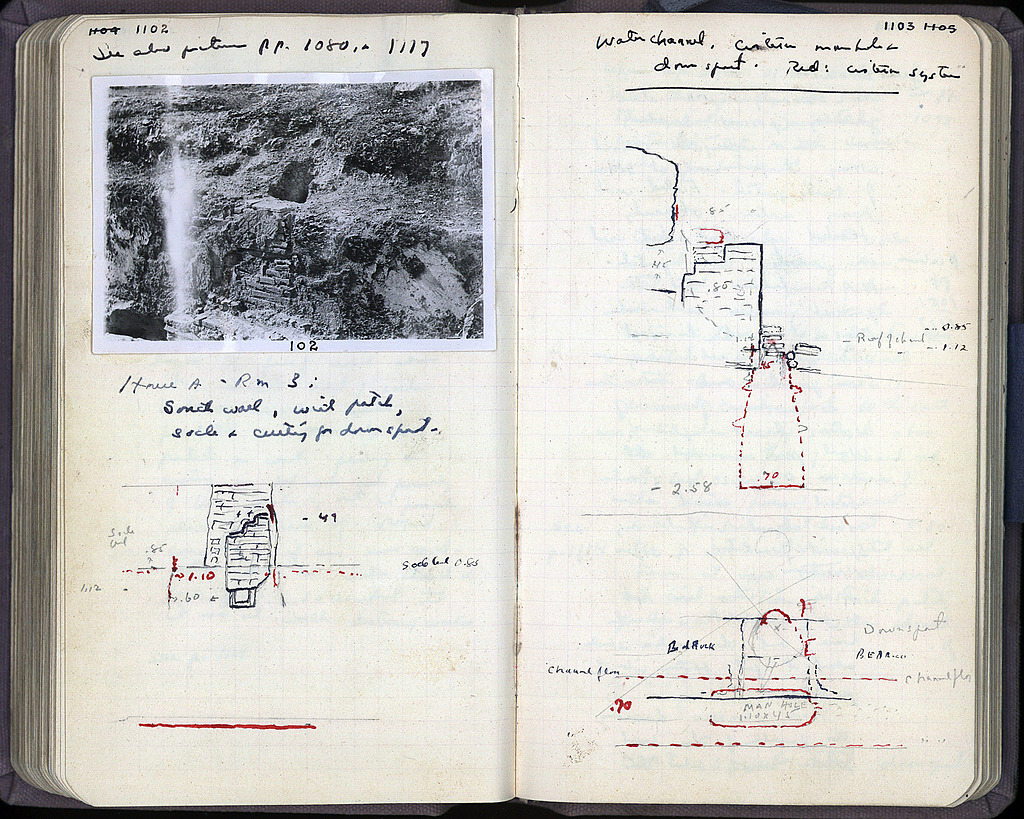 1104 1102
See also picture pp. 1080, + 1117
102
House A - Rm 3:
South wall, with patch,
socle & cutting for downspout.
- 49
Socle
.85
Socle level 0.85
1.10
1.12
.60
1103 1105
Water channel, cistern manhole &
downspout. Red: cistern system
.85
.45
.85
0.85
- Roof of channel - 1.12
1.12
.70
- 2.58
Downspout
Bedrock
BEDROCK
Channel floor
Channel floor
.70
MAN HOLE
1.10 x 45